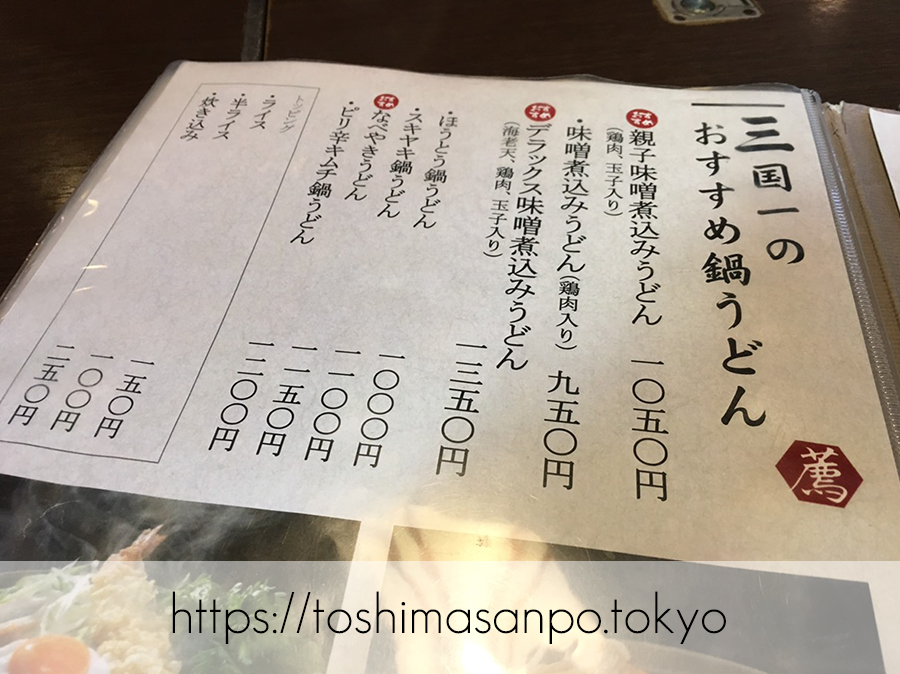 三国一の
おすすめ鍋うどん
薦
おすすめ 親子味噌煮込みうどん 一〇五〇円
（鶏肉、玉子入り）
・味噌煮込みうどん（鶏肉入り） 九五〇円
おすすめ デラックス味噌煮込みうどん 一三五〇円
（海老天、鶏肉、玉子入り）
・ほうとう鍋うどん 一〇〇〇円
・スキヤキ鍋うどん 一一〇〇円
おすすめ なべやきうどん 一一五〇円
・ピリ辛キムチ鍋うどん 一二〇〇円
トッピング
・ライス 一五〇円
・半ライス 一〇〇円
・炊き込み 二五〇円
https://toshimasanpo.tokyo